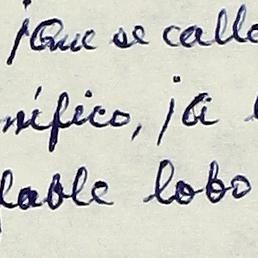 ¡Que se calle
nífico, ¡a
lable lobo